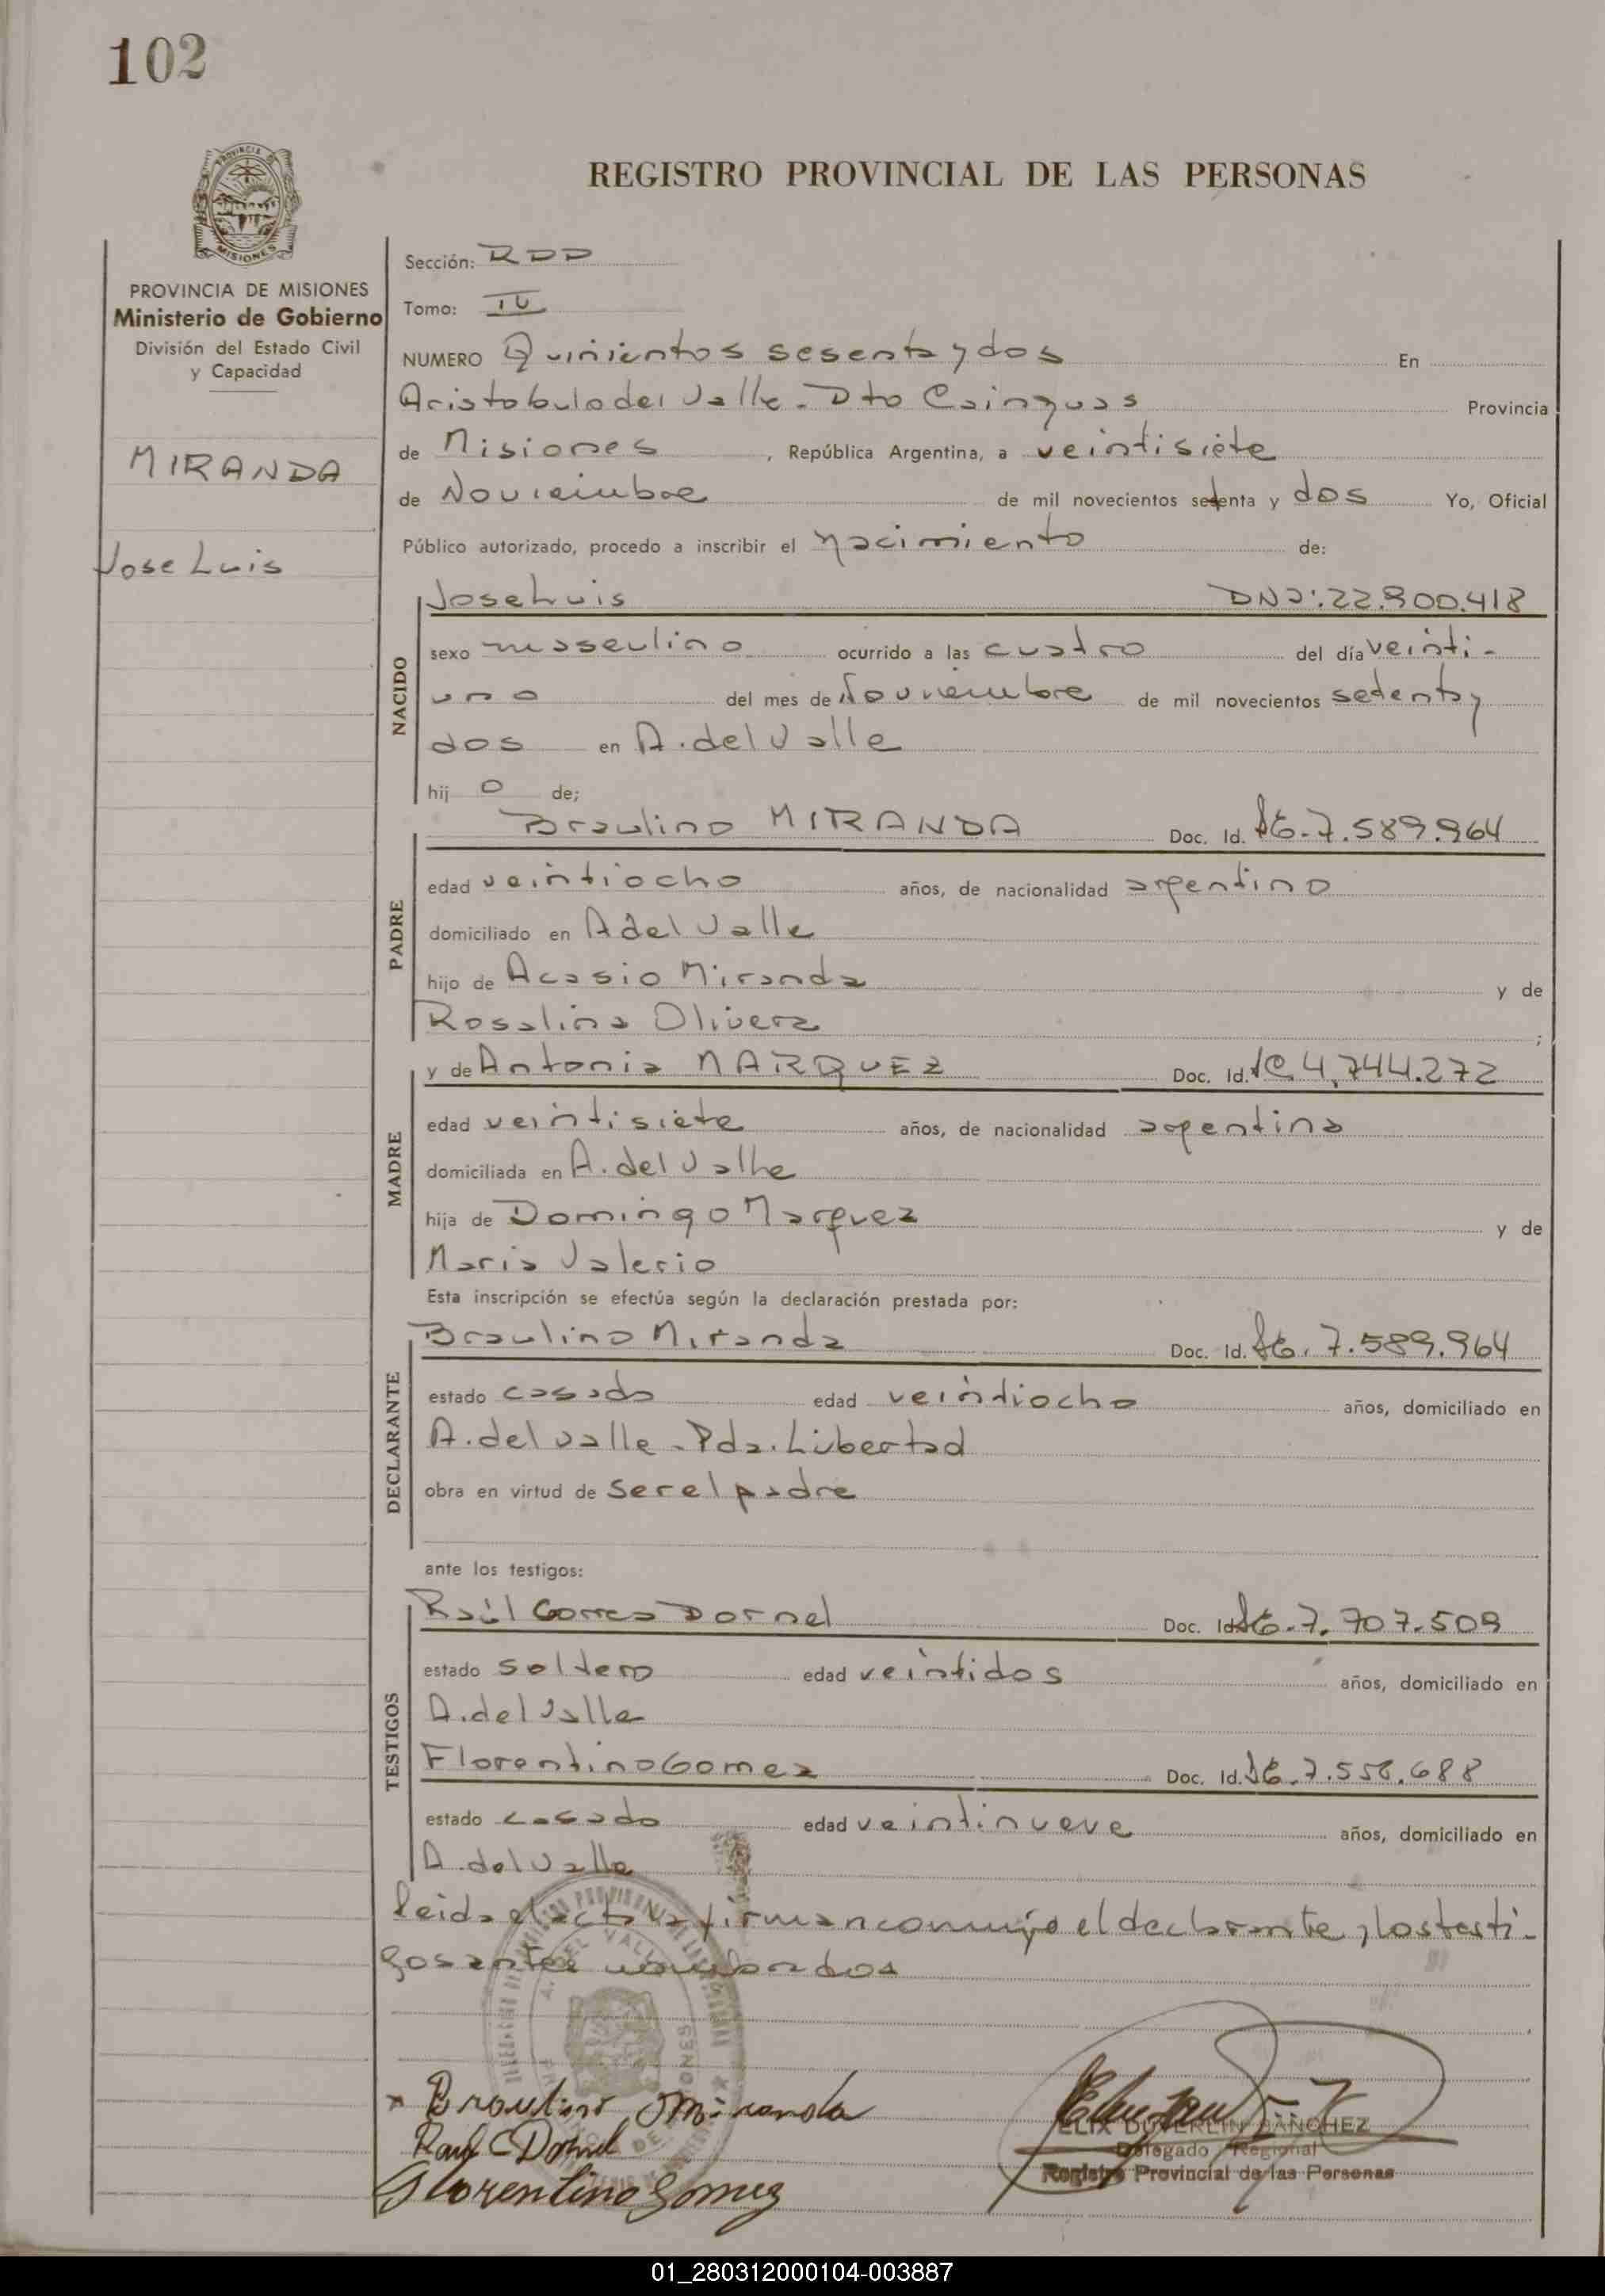 102
REGISTRO PROVINCIAL DE LAS PERSONAS
PROVINCIA DE MISIONES
Ministerio de Gobierno
División del Estado Civil
y Capacidad
MIRANDA
Jose Luis
Sección: RDD
Tomo: IV
NUMERO Quinientos sesenta y dos En
Aristobulo del Valle - Dto Cainguas Provincia
de Misiones, República Argentina, a veintisiete
de Noviembre de mil novecientos setenta y dos Yo, Oficial
Público autorizado, procedo a inscribir el nacimiento de:
NACIDO
Jose Luis DNI: 22.900.418
sexo masculino ocurrido a las cuatro del día veinti-
uno del mes de Noviembre de mil novecientos setenta y
dos en A. del Valle
hij o de;
PADRE
Braulino MIRANDA Doc. Id. LE. 7.589.964
edad veintiocho años, de nacionalidad argentino
domiciliado en A del Valle
hijo de Acasio Miranda y de
Rosalina Olivera ;
MADRE
y de Antonia MARQUEZ Doc. Id. LC 4.744.272
edad veintisiete años, de nacionalidad argentina
domiciliada en A. del Valle
hija de Domingo Marquez y de
Maria Valerio
Esta inscripción se efectúa según la declaración prestada por:
DECLARANTE
Braulino Miranda Doc. Id. LE. 7.589.964
estado casado edad veintiocho años, domiciliado en
A. del Valle - Pda. Libertad
obra en virtud de ser el padre
ante los testigos:
TESTIGOS
Raúl Correa Dornel Doc. Id. LE. 7.707.509
estado soltero edad veintidos años, domiciliado en
A. del Valle
Florentino Gomez Doc. Id. LE. 7.558.688
estado casado edad veintinueve años, domiciliado en
A. del Valle
leida el acta la firman conmigo el declarante y los testi-
gos antes nombrados
Braulino Miranda
Raul C Dornel
Florentino Gomez
ELIX DUVERLIN SANCHEZ
Delegado Regional
Registro Provincial de las Personas
01_280312000104-003887